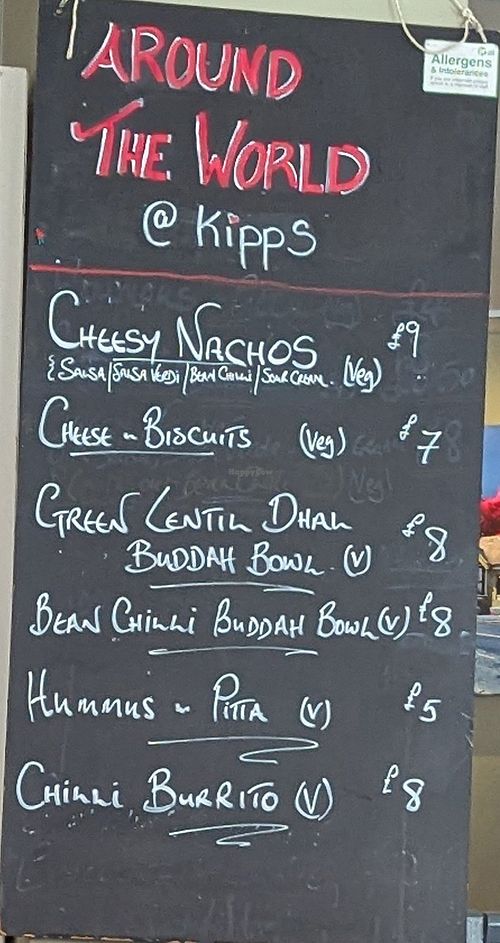 Allergens
& Intolerances
AROUND
THE WORLD
@ KippS
CHEESY NACHOS £9
{SALSA/SALSA VERDI/BEAN CHILLI/SOUR CREAM. (Veg)
CHEESE n BISCUITS (Veg) £7
GREEN LENTIL DHAL £8
BUDDAH BOWL. (V)
BEAN CHILLI BUDDAH BOWL (V) £8
HUMMUS n PITTA (V) £5
CHILLI BURRITO (V) £8